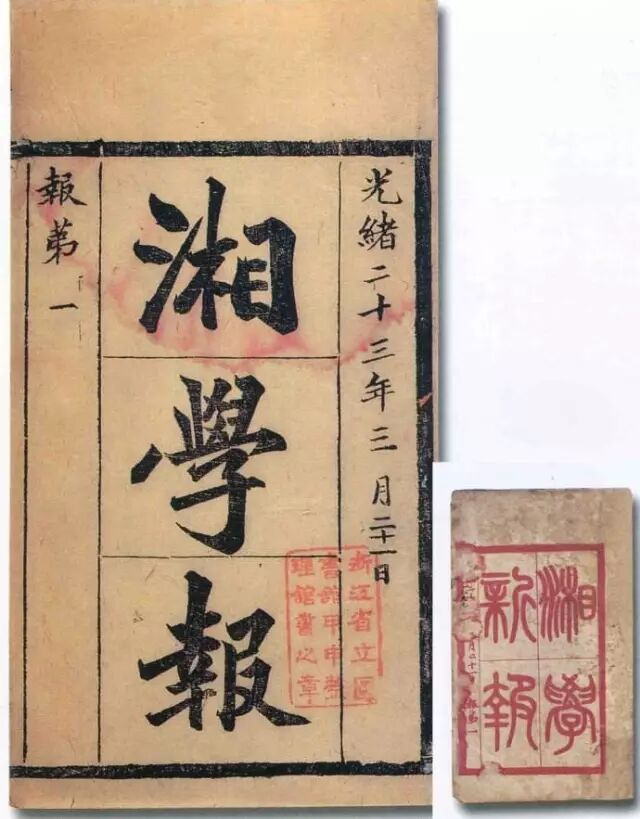 光緒二十三年三月二十一日
湘學報
報第一
浙江省立圖
書館甲申整
理舊書之章
湘學
新報
報第一